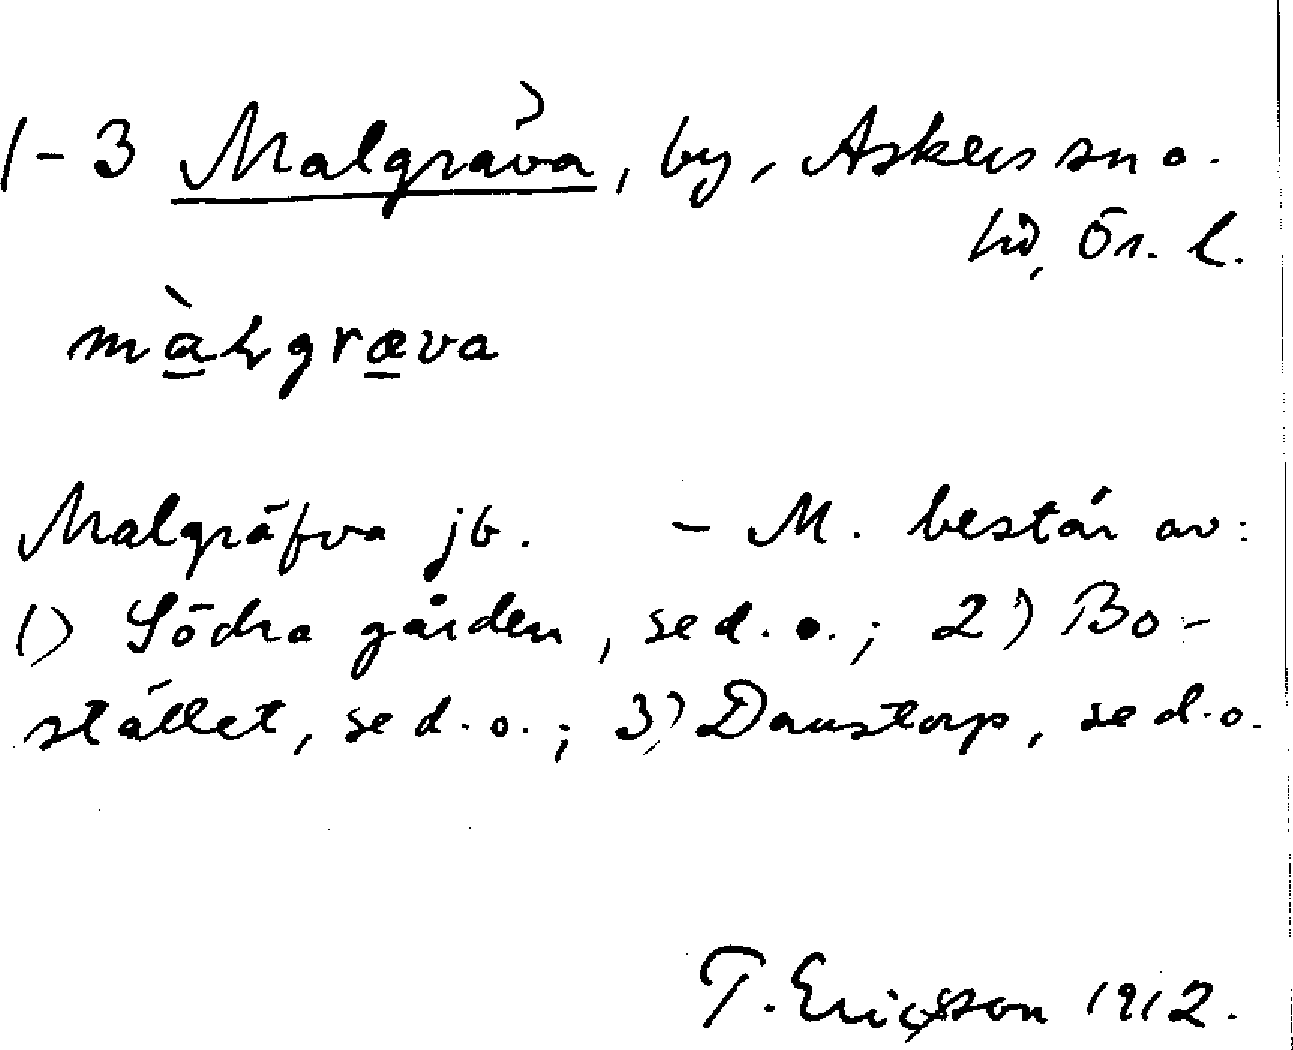 1-3 Malgräva, by, Askers sn o.
hd, Ör. l.
màlgræva
Malgräfva jb. - M. består av:
1) Södra gården, se d. o.; 2) Bo-
stället, se d. o.; 3) Danstorp, se d. o.
T. Ericsson 1912.